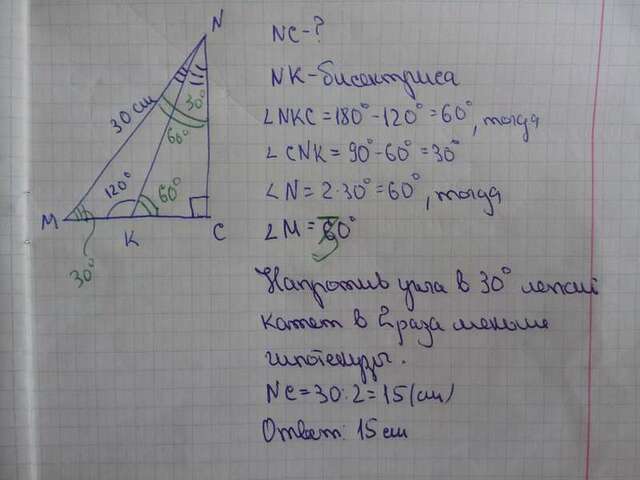 M
30°
120°
30 см
K
60°
60°
30°
C
N
NC-?
NK-биссектриса
∠NKC=180°-120°=60°, тогда
∠CNK=90°-60°=30°
∠N=2·30°=60°, тогда
∠M=30°
Напротив угла в 30° лежит
катет в 2 раза меньше
гипотенузы.
NC=30:2=15(см)
Ответ: 15 см